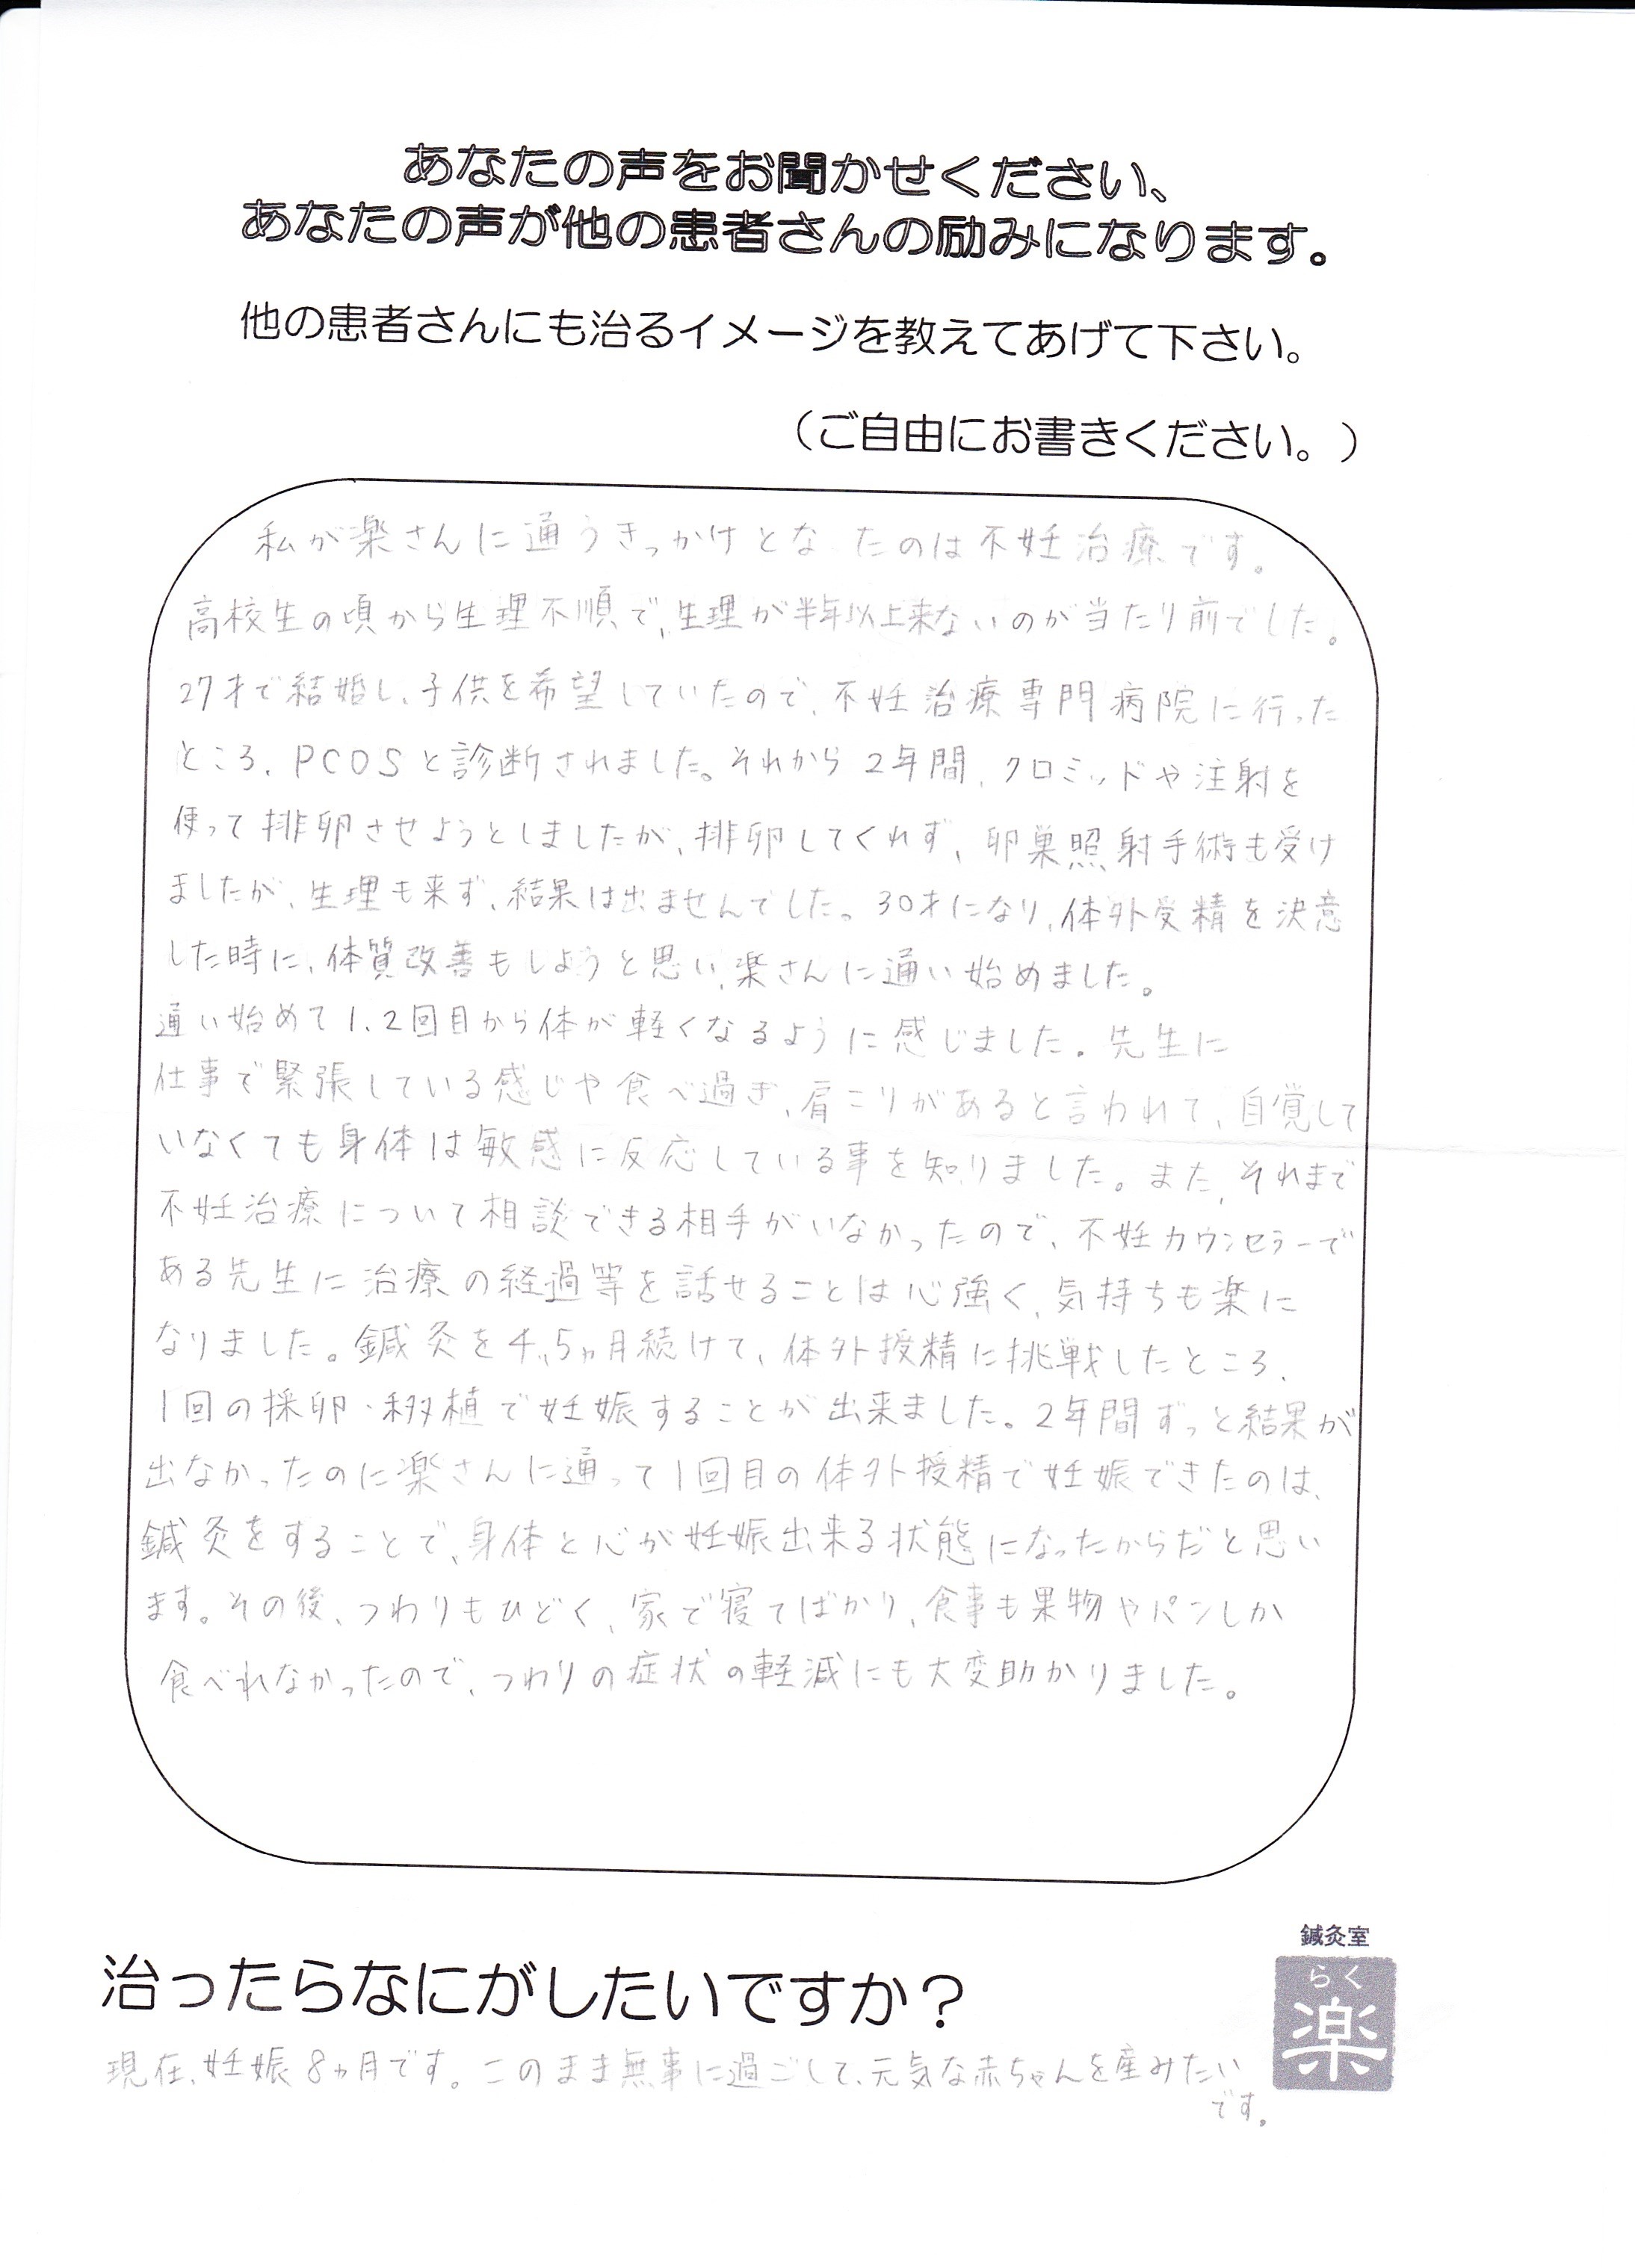 あなたの声をお聞かせください、
あなたの声が他の患者さんの励みになります。
他の患者さんにも治るイメージを教えてあげて下さい。
（ご自由にお書きください。）
私が楽さんに通うきっかけとなったのは不妊治療です。
高校生の頃から生理不順で、生理が半年以上来ないのが当たり前でした。
27才で結婚し、子供を希望していたので、不妊治療専門病院に行った
ところ、PCOSと診断されました。それから2年間、クロミッドや注射を
使って排卵させようとしましたが、排卵してくれず、卵巣照射手術も受け
ましたが、生理も来ず、結果は出ませんでした。30才になり、体外受精を決意
した時に、体質改善もしようと思い、楽さんに通い始めました。
通い始めて1、2回目から体が軽くなるように感じました。先生に
仕事で緊張している感じや食べ過ぎ、肩こりがあると言われて、自覚して
いなくても身体は敏感に反応している事を知りました。また、それまで
不妊治療について相談できる相手がいなかったので、不妊カウンセラーで
ある先生に治療の経過等を話せることは心強く、気持ちも楽に
なりました。鍼灸を4、5ヵ月続けて、体外授精に挑戦したところ、
1回の採卵・移植で妊娠することが出来ました。2年間ずっと結果が
出なかったのに楽さんに通って1回目の体外授精で妊娠できたのは、
鍼灸をすることで、身体と心が妊娠出来る状態になったからだと思い
ます。その後、つわりもひどく、家で寝てばかり、食事も果物やパンしか
食べれなかったので、つわりの症状の軽減にも大変助かりました。
治ったらなにがしたいですか？
現在、妊娠8ヵ月です。このまま無事に過ごして、元気な赤ちゃんを産みたい
です。
鍼灸室
らく
楽